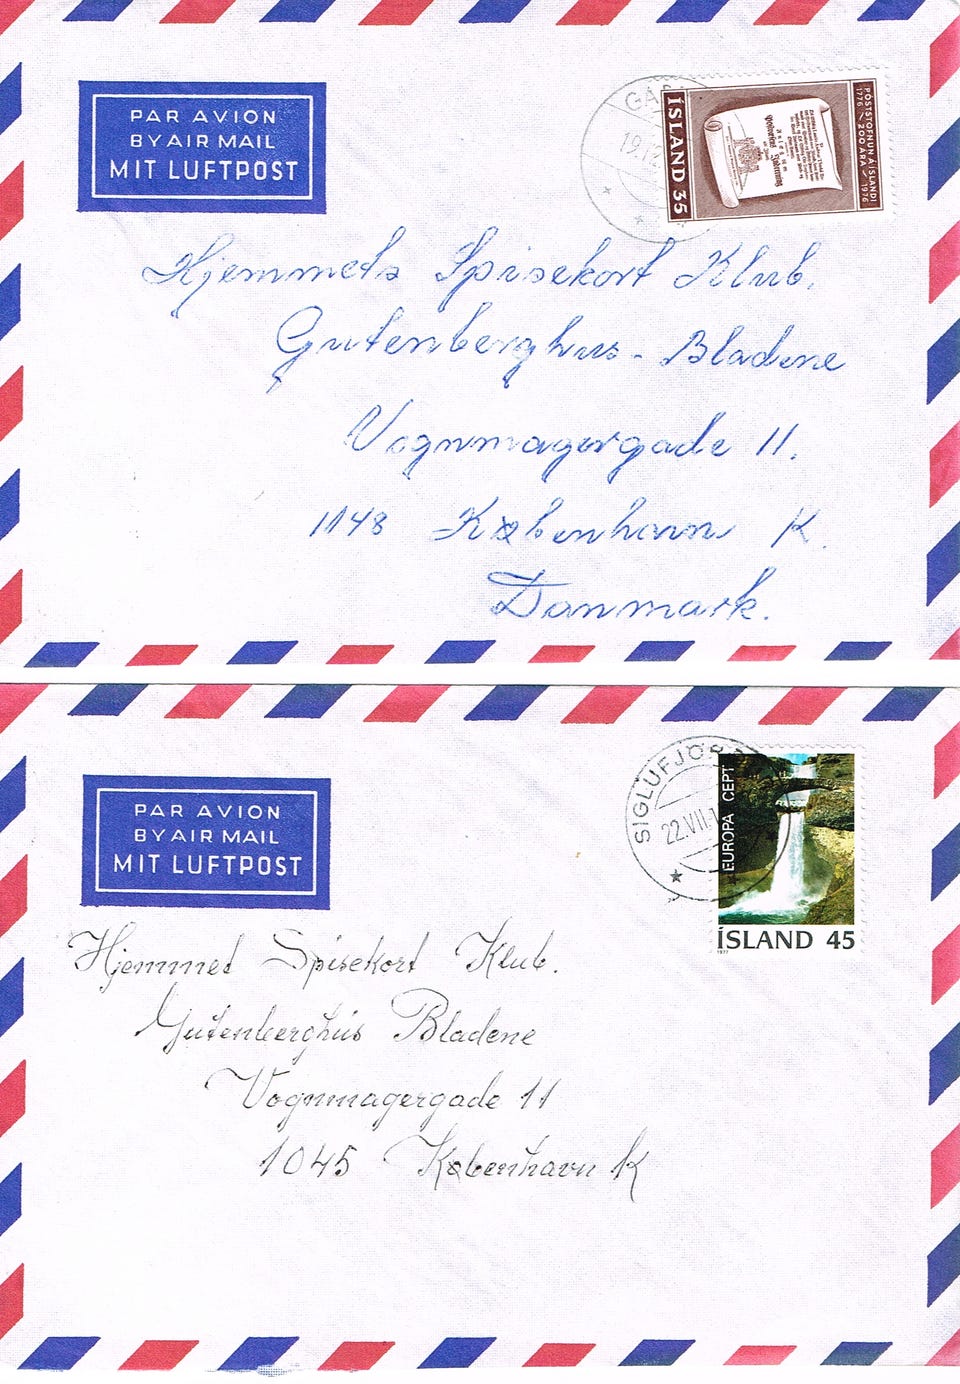 PAR AVION
BY AIR MAIL
MIT LUFTPOST
ÍSLAND 35
PÓSTSTOFNUN Á ÍSLANDI
1776 200 ÁRA 1976
Hjemmets Spisekort Klub.
Gutenberghus - Bladene
Vognmagergade 11.
1148 København K.
Danmark.
PAR AVION
BY AIR MAIL
MIT LUFTPOST
SIGLUFJÖR
22.VII.1
EUROPA CEPT
ÍSLAND 45
1977
Hjemmet Spisekort Klub.
Gutenberghús Bladene
Vognmagergade 11
1045 København K